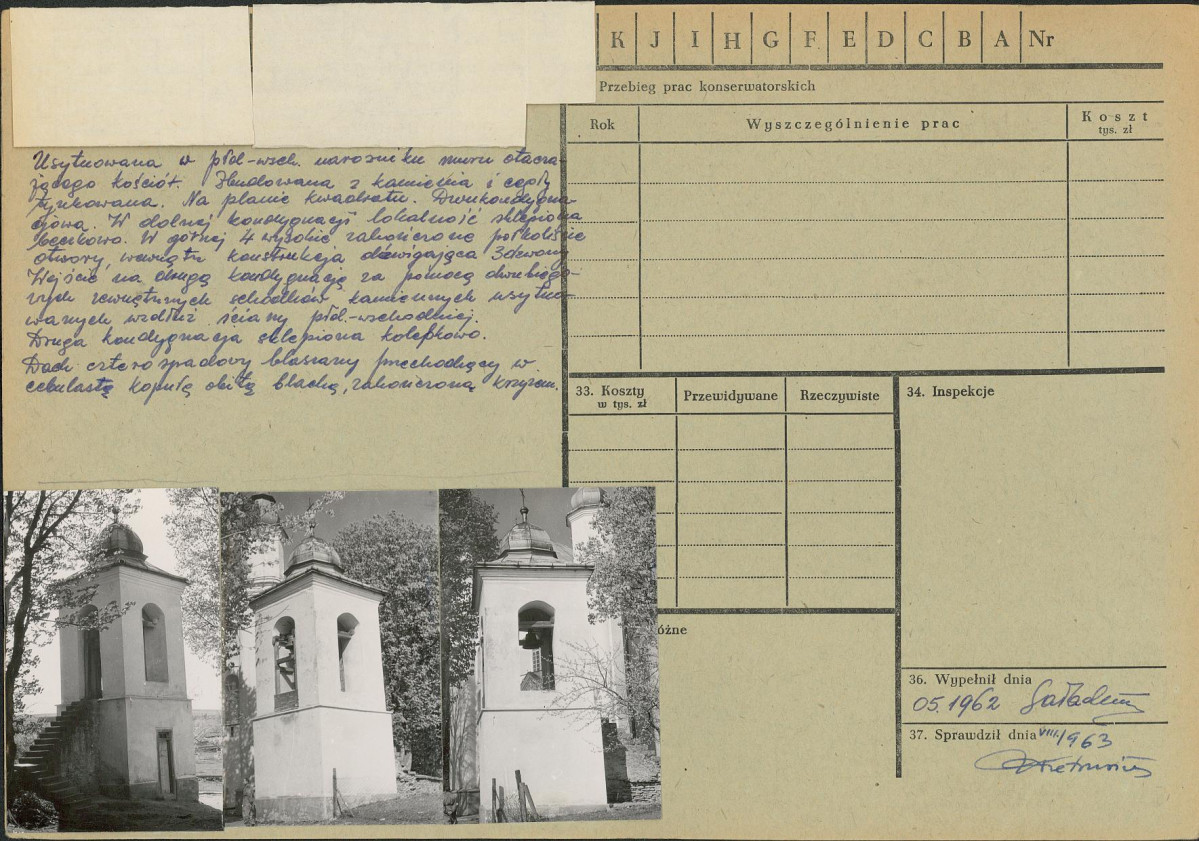 K J I H G F E D C B A Nr
Przebieg prac konserwatorskich
Rok
Wyszczególnienie prac
Koszt
tys. zł
Usytuowana w płd-wsch. narożniku muru otacza-
jącego kościół. Zbudowana z kamienia i cegły
tynkowana. Na planie kwadratu. Dwukondygna-
cjowa. W dolnej kondygnacji lokalność sklepiona
beczkowo. W górnej 4 wysokie zakończone półkoliście
otwory, wewnątrz konstrukcja dźwigająca 3 dzwony
Wejście na drugą kondygnację za pomocą dwubiego-
wych zewnętrznych schodków kamiennych usytuo-
wanych wzdłuż ściany płd.-wschodniej.
Druga kondygnacja sklepiona kolebkowo.
Dach czterospadowy blaszany przechodzący w
cebulastą kopułę obitą blachą, zakończoną krzyżem.
33. Koszty
w tys. zł
Przewidywane
Rzeczywiste
34. Inspekcje
óżne
36. Wypełnił dnia
05.1962
37. Sprawdził dnia VIII/1963